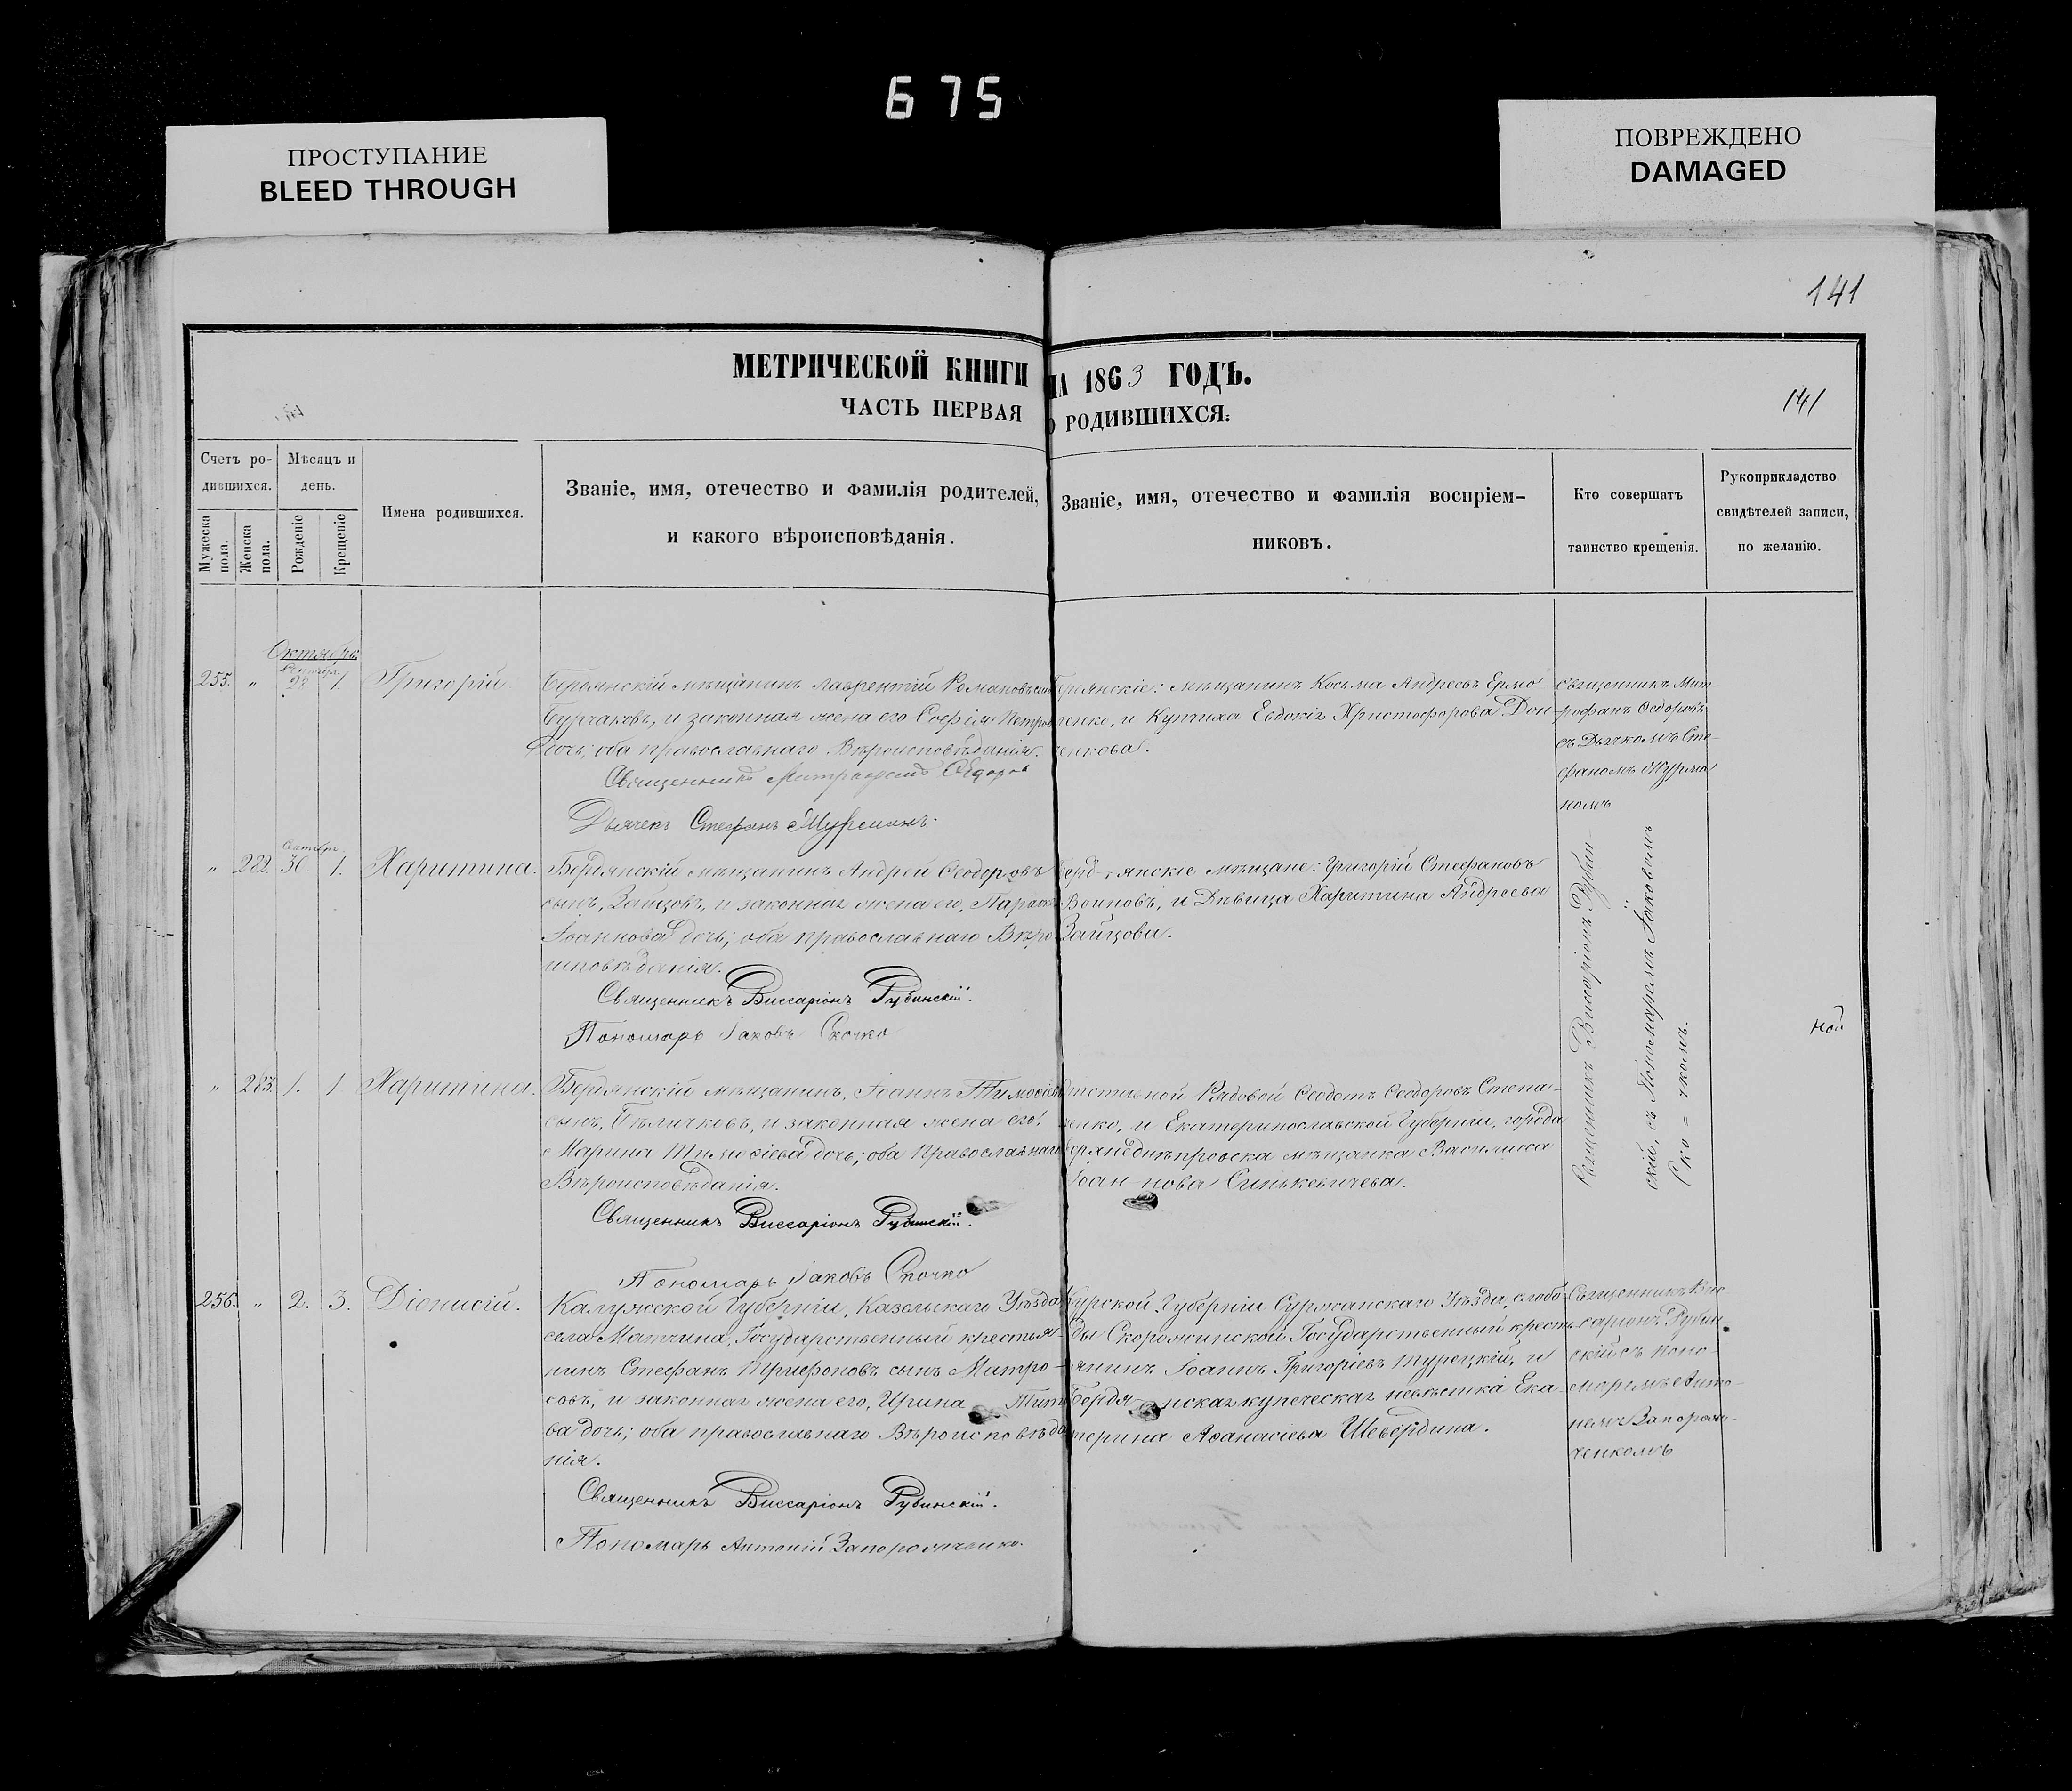 675
ПРОСТУПАНИЕ
BLEED THROUGH
ПОВРЕЖДЕНО
DAMAGED
141
МЕТРИЧЕСКОЙ КНИГИ НА 1863 ГОДЪ.
ЧАСТЬ ПЕРВАЯ О РОДИВШИХСЯ:
141
Счетъ ро-
дившихся.
Мужеска пола.
Женска пола.
Мѣсяцъ и
день.
Рожденіе
Крещеніе
Имена родившихся.
Званіе, имя, отечество и фамилія родителей,
и какого вѣроисповѣданія.
Званіе, имя, отечество и фамилія воспріем-
никовъ.
Кто совершатъ
таинство крещенія.
Рукоприкладство
свидѣтелей записи,
по желанію.
Октябрь
255. " 1. Григорій
Бердянскій мѣщанинъ Лаврентій Романовъ сын
Бурчаковъ, и законная жена его Софія Петров
дочь; оба православнаго Вѣроисповѣданія.
Священникъ Митрофанъ Ѳедоров
Дьячекъ Стефанъ Шурманъ.
Бердянскіе: мѣщанинъ Косьма Андреевъ Ермо-
ленко, и Купчиха Евдокія Христофорова Дон-
ченкова.
Священникъ Мит-
рофанъ Ѳеодоровъ
съ Дьячкомъ Сте-
фаномъ Шурма
номъ
" 282. Сентября 30. 1. Харитина.
Бердянскій мѣщанинъ Андрей Ѳеодоровъ
сынъ, Зайцовъ, и законная жена его, Параск
Іоаннова дочь; оба православнаго Вѣро-
исповѣданія.
Священникъ Виссаріонъ Рубинскій.
Пономарь Іаковъ Скочко
Бердянскіе мѣщане: Григорій Стефановъ
Воиновъ, и Дѣвица Харитина Андреева
Зайцова.
Священникъ Виссаріонъ Рубин-
скій, съ Пономаремъ Іаковомъ
Ско=чкомъ.
" 283. 1. 1 Харитина.
Бердянскій мѣщанинъ, Іоаннъ Тимоѳіев
сынъ, Бѣличковъ, и законная жена его:
Марина Тимоѳіева дочь; оба Православнаго
Вѣроисповѣданія.
Священникъ Виссаріонъ Рубинскій.
Пономарь Іаковъ Скочко
Отставной Рядовой Ѳеодотъ Ѳеодоровъ Степа-
ненко, и Екатеринославской Губерніи, города
Верхнеднѣпровска мѣщанка Василисса
Іоаннова Синькевичева.
256. " 2. 3. Діонисій.
Калужской Губерніи, Казельскаго Уѣзда
села Матчина, Государственный крестья-
нинъ Стефанъ Трифоновъ сынъ Митро-
совъ, и законная жена его, Ирина Тит
ва дочь; оба православнаго Вѣроисповѣда
нія.
Священникъ Виссаріонъ Рубинскій.
Пономарь Антоній Запорожченко.
Курской Губерніи Суржанскаго Уѣзда, слобо-
ды Скорожинской Государственный кресть-
янинъ Іоаннъ Григоріевъ Турецкій, и
Бердянская купеческая невѣстка Ека-
терина Аѳанасіева Шевердина.
Священникъ Вис
саріонъ Рубин
скій съ Поно-
маремъ Анто-
ніемъ Запорож-
ченкомъ